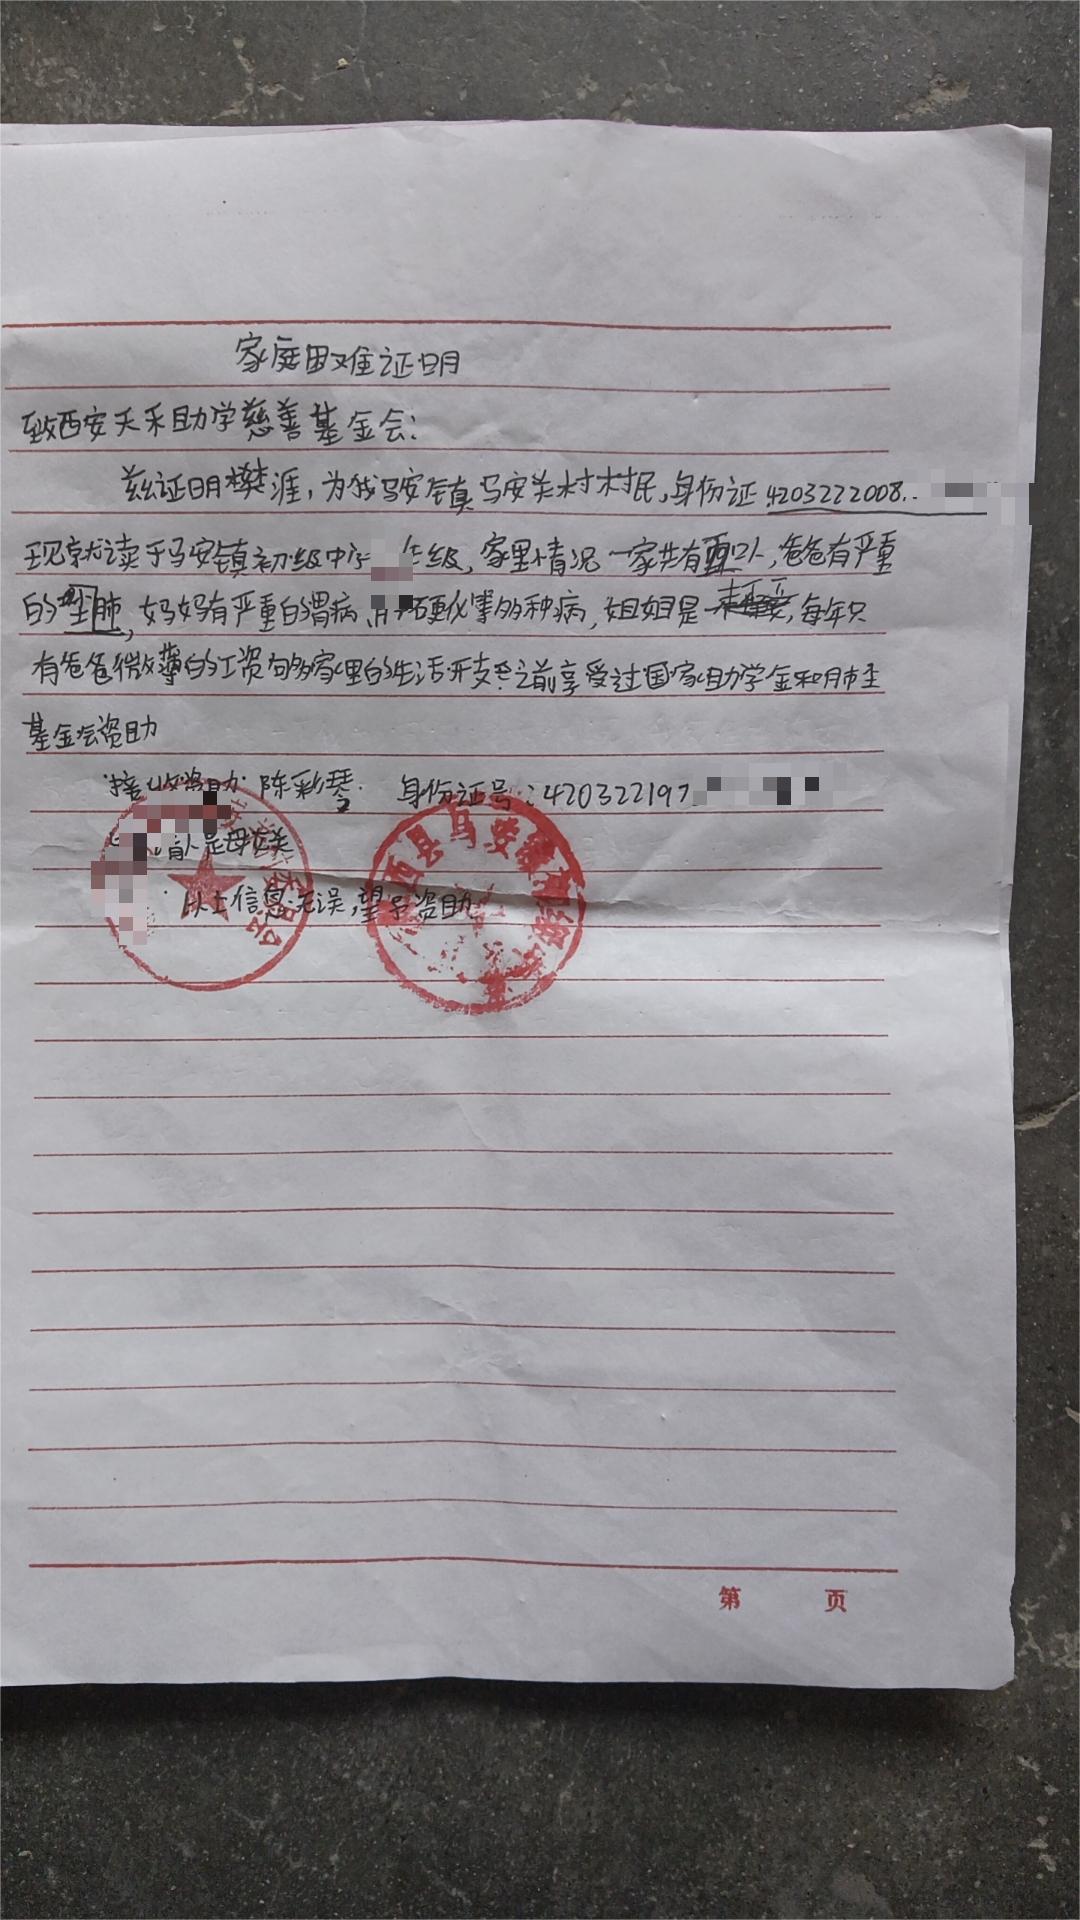 家庭困难证明
致西安天禾助学慈善基金会：
兹证明樊涯，为我马安镇马安关村村民，身份证4203222008
现就读于马安镇初级中 级，家里情况一家共有四口人，爸爸有严重
的尘肺，妈妈有严重的胃病、 硬化等多种病，姐姐是 ，每年只
有爸爸微薄的工资 家里的生活开支！之前享受过国家助学金和
基金会资助
接收资助 陈彩琴 身份证号：420322197
人是母女关
以上信息无误，望予资助
西县马安镇
委员会
第 页